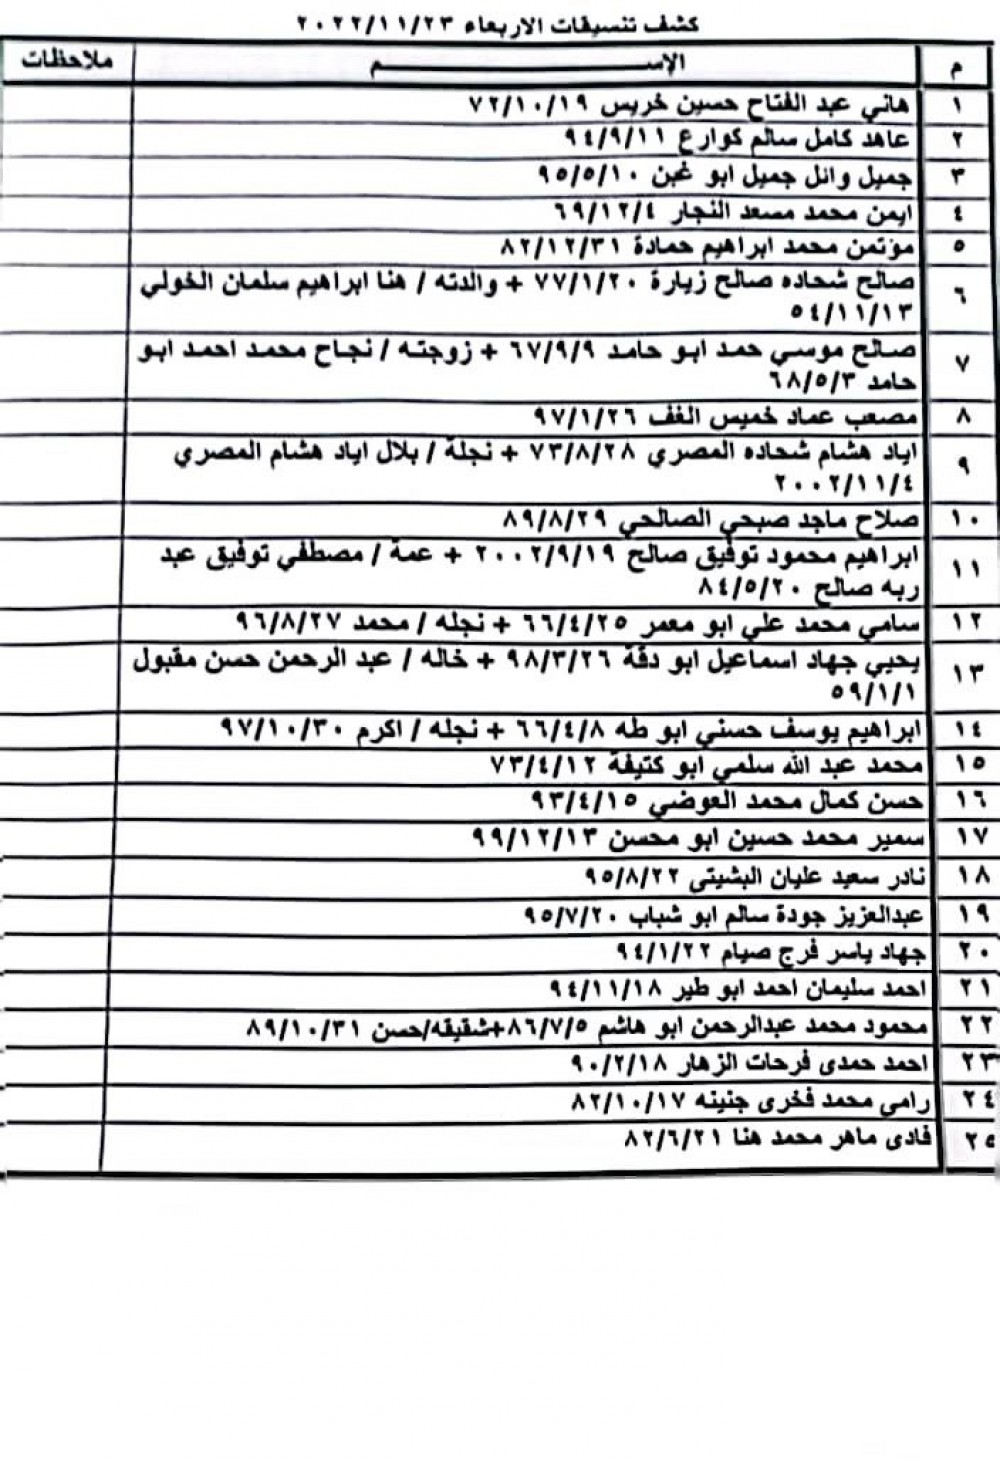 كشف تنسيقات الاربعاء ٢٠٢٢/١١/٢٣
م الإســـــــم ملاحظات
١ هاني عبد الفتاح حسين خريس ٧٢/١٠/١٩
٢ عاهد كامل سالم كوارع ٩٤/٩/١١
٣ جميل وائل جميل ابو غبن ٩٥/٥/١٠
٤ ايمن محمد مسعد النجار ٦٩/١٢/٤
٥ مؤتمن محمد ابراهيم حمادة ٨٢/١٢/٣١
٦ صالح شحاده صالح زيارة ٧٧/١/٢٠ + والدته / هنا ابراهيم سلمان الخولي
٥٤/١١/١٣
٧ صالح موسي حمد ابو حامد ٦٧/٩/٩ + زوجته / نجاح محمد احمد ابو
حامد ٦٨/٥/٣
٨ مصعب عماد خميس الغف ٩٧/١/٢٦
٩ اياد هشام شحاده المصري ٧٣/٨/٢٨ + نجلة / بلال اياد هشام المصري
٢٠٠٢/١١/٤
١٠ صلاح ماجد صبحي الصالحي ٨٩/٨/٢٩
١١ ابراهيم محمود توفيق صالح ٢٠٠٢/٩/١٩ + عمة / مصطفي توفيق عبد
ربه صالح ٨٤/٥/٢٠
١٢ سامي محمد علي ابو معمر ٦٦/٤/٢٥ + نجله / محمد ٩٦/٨/٢٧
١٣ يحيي جهاد اسماعيل ابو دقة ٩٨/٣/٢٦ + خاله / عبد الرحمن حسن مقبول
٥٩/١/١
١٤ ابراهيم يوسف حسني ابو طه ٦٦/٤/٨ + نجله / اكرم ٩٧/١٠/٣٠
١٥ محمد عبد الله سلمي ابو كتيفة ٧٣/٤/١٢
١٦ حسن كمال محمد العوضي ٩٣/٤/١٥
١٧ سمير محمد حسين ابو محسن ٩٩/١٢/١٣
١٨ نادر سعيد عليان البشيتى ٩٥/٨/٢٢
١٩ عبدالعزيز جودة سالم ابو شباب ٩٥/٧/٢٠
٢٠ جهاد ياسر فرج صيام ٩٤/١/٢٢
٢١ احمد سليمان احمد ابو طير ٩٤/١١/١٨
٢٢ محمود محمد عبدالرحمن ابو هاشم ٨٦/٧/٥+شقيقه/حسن ٨٩/١٠/٣١
٢٣ احمد حمدى فرحات الزهار ٩٠/٢/١٨
٢٤ رامي محمد فخرى جنينه ٨٢/١٠/١٧
٢٥ فادى ماهر محمد هنا ٨٢/٦/٢١